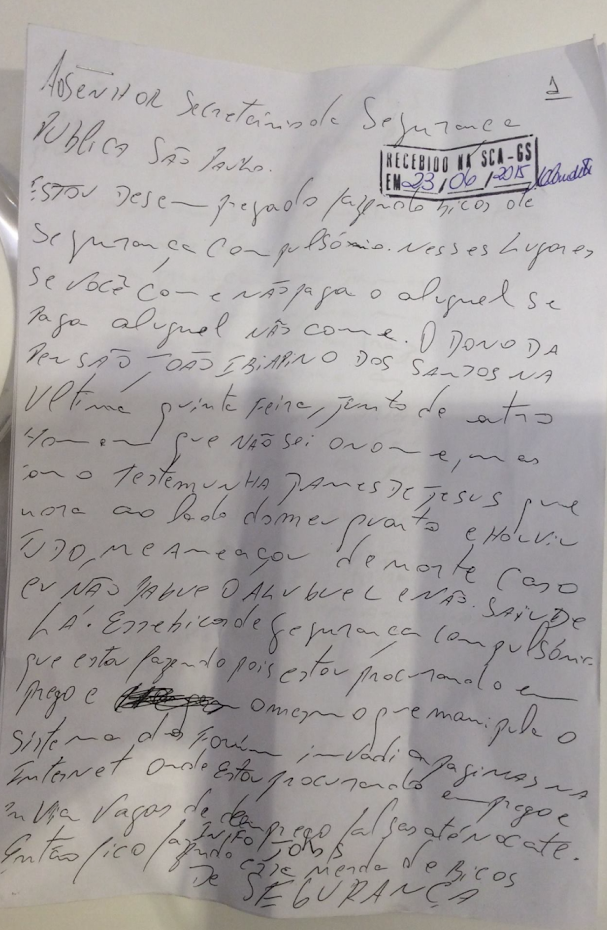 1
AO SENHOR Secretário da Segurança
PUBLICA SÃO PAULO.
RECEBIDO NA SCA-GS
EM 23/06/2015
ESTOU Desempregado fazendo bicos de
Segurança Compulsória. Nesses Lugares
se você come NÃO paga o aluguel se
paga aluguel NÃO come. O DONO DA
PENSÃO JOÃO IBIAPINO DOS SANTOS NA
Ultima quinta feira, junto de outro
Homem que NÃO sei o nome, mas
TESTEMUNHA JAMES DE JESUS que
mora ao lado do meu quarto e HOUVIU
TUDO, me AMEAÇOU de morte CASO
eu NÃO PAGUE O ALUGUEL e NÃO SAIU DE
LÁ. Esse bico de Segurança Compulsória
que estou fazendo pois estou procurando em
prego e o mesmo que manipula o
sistema do Forum invadi a paginas na
Internet onde estou procurando emprego e
envia vagas de emprego falsas até no cate.
Então fico fazendo
esta merda de Bicos
De SEGURANÇA